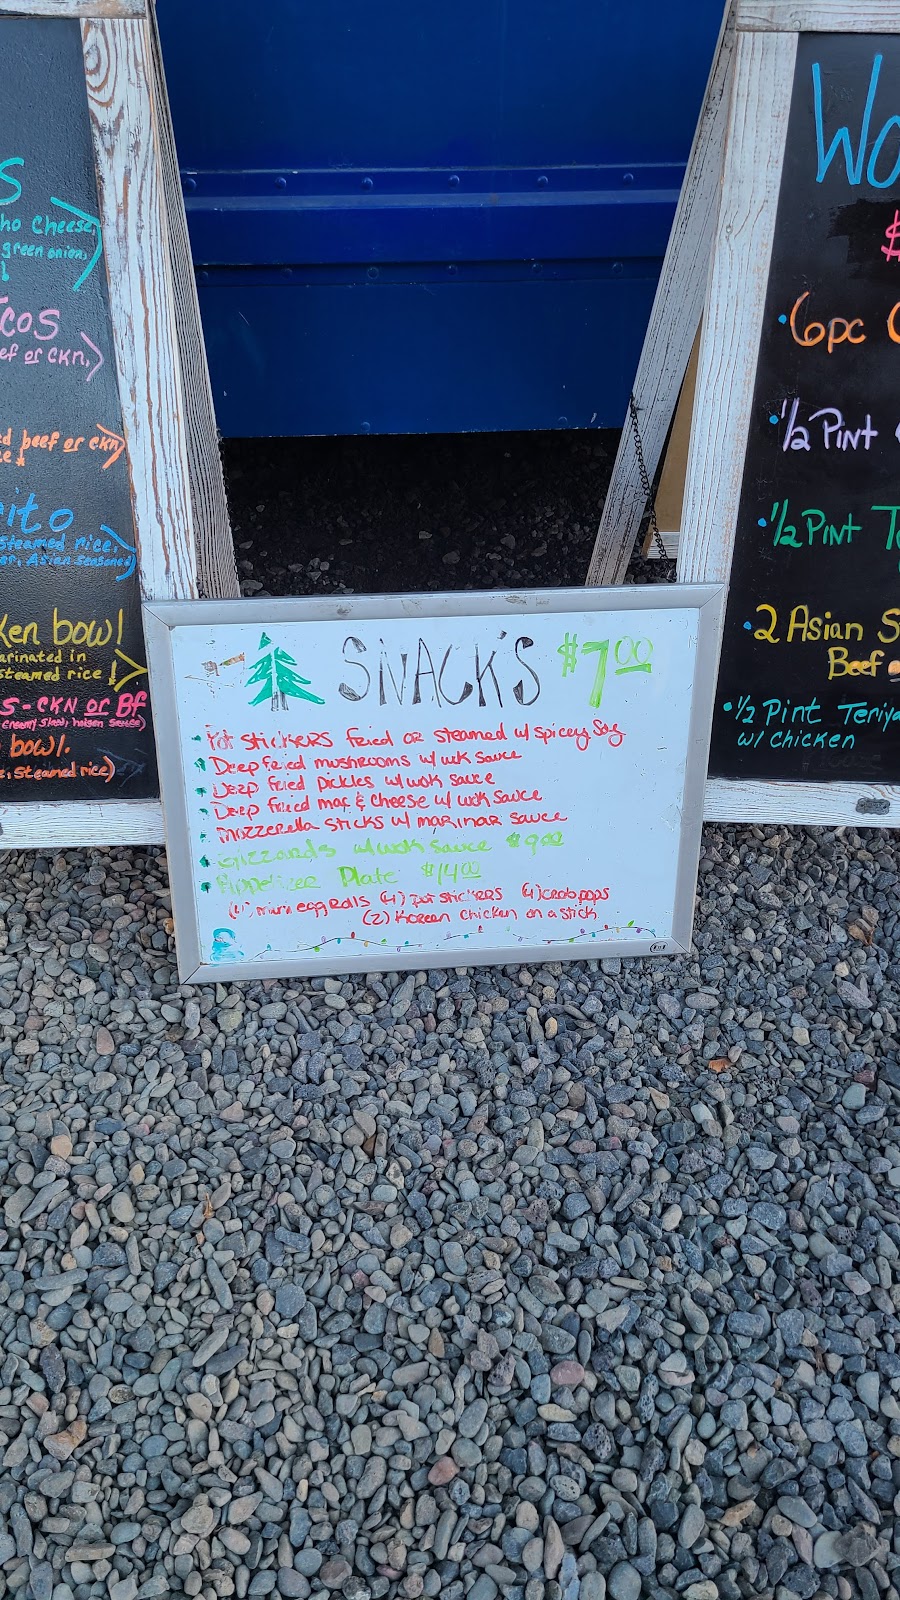 s
ho cheese,
green onion,
cos
ef or ckn,
d beef or ckn
ito
steamed rice,
Asian seasoned
ken bowl
arinated in
steamed rice!
S - CKN or Bf
bowl.
steamed rice)
SNACK'S $7.00
Pot stickers fried or steamed w/ spicey Soy
Deep fried mushrooms w/ wok sauce
Deep fried Pickles w/ wok sauce
Deep fried mac & cheese w/ wok sauce
Mozzerella sticks w/ marinar sauce
Gizzards w/ wok sauce $9.00
Appetizer Plate $14.00
(4) mini egg Rolls (4) pot stickers (4) crab pops
(2) Korean chicken on a stick
Wo
$
•6pc
•1/2 Pint
•1/2 Pint T
•2 Asian S
Beef
•1/2 Pint Teriya
w/ chicken